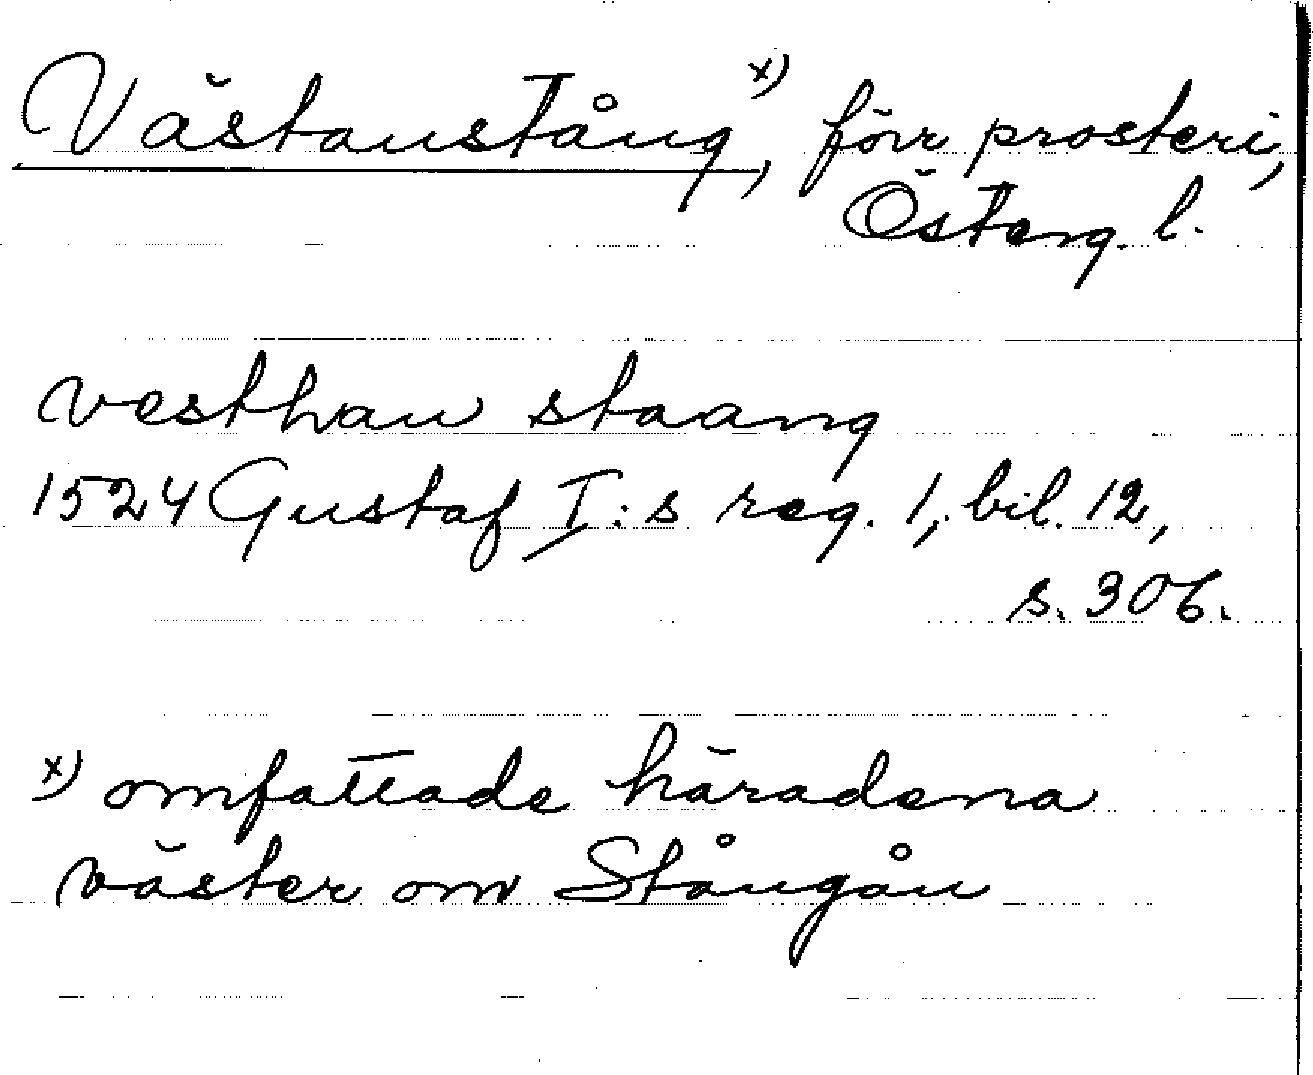 Västanstång x), förr prosteri,
Österg. l.
vesthan staang
1524 Gustaf I:s reg. 1, bil. 12,
s. 306.
x) omfattade häradena
väster om Stångån